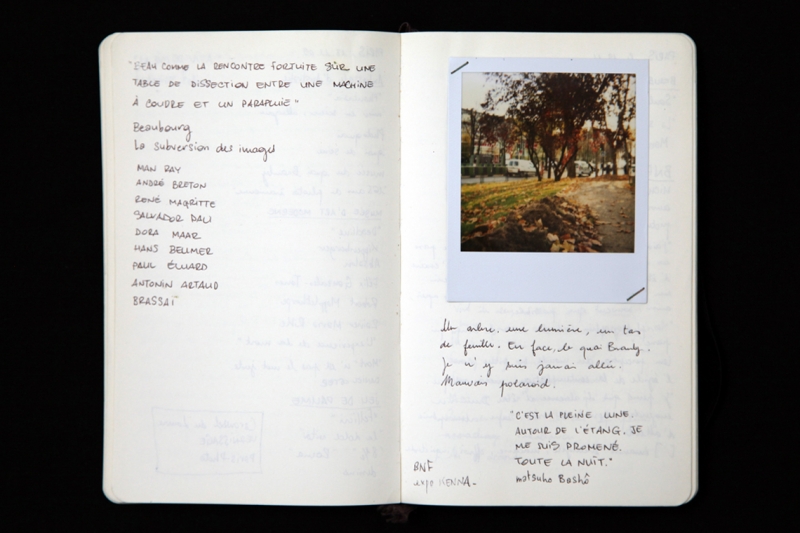 "BEAU COMME LA RENCONTRE FORTUITE SUR UNE
TABLE DE DISSECTION ENTRE UNE MACHINE
À COUDRE ET UN PARAPLUIE"
Beaubourg
La subversion des images
MAN RAY
ANDRÉ BRETON
RENÉ MAGRITTE
SALVADOR DALI
DORA MAAR
HANS BELLMER
PAUL ÉLUARD
ANTONIN ARTAUD
BRASSAÏ
Un arbre, une lumière, un tas
de feuilles. En face, le quai Branly.
Je n'y suis jamais allée.
Mauvais polaroid.
"C'EST LA PLEINE LUNE.
AUTOUR DE L'ÉTANG. JE
ME SUIS PROMENÉ.
TOUTE LA NUIT."
matsuho Bashô
BNF
expo KENNA-